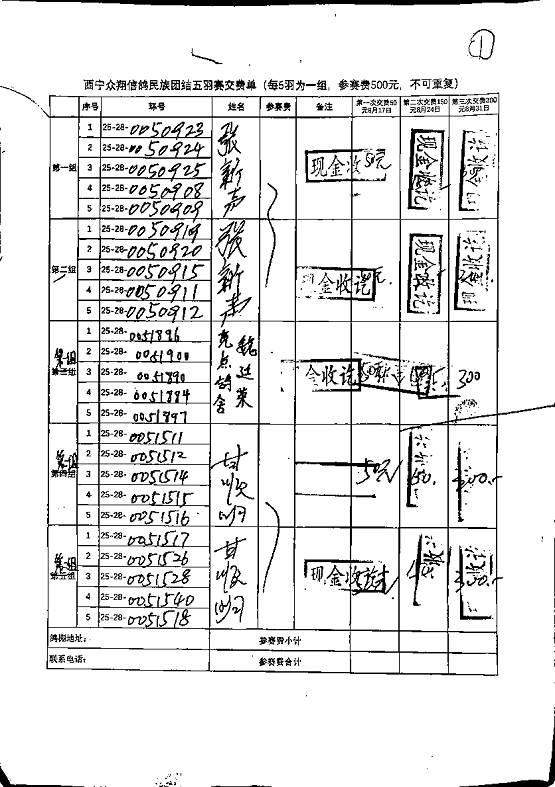 ①
西宁众翔信鸽民族团结五羽赛交费单（每5羽为一组，参赛费500元，不可重复）
序号 环号 姓名 参赛费 备注 第一次交费50元8月17日 第二次交费150元8月24日 第三次交费300元8月31日
第一组
1 25-28-0050923 张新声
2 25-28-0050924
3 25-28-0050925 现金收 50元 现金收讫 现金收讫
4 25-28-0050908
5 25-28-0050909
第二组
1 25-28-0050919 张新声
2 25-28-0050920
3 25-28-0050915 现金收讫 元 现金收讫 现金收讫
4 25-28-0050911
5 25-28-0050912
第一组
1 25-28-0051896
2 25-28-0051900
3 25-28-0051890 金收讫 300
4 25-28-0051884
5 25-28-0051897
第一组 第四组
1 25-28-0051511
2 25-28-0051512
3 25-28-0051514 50元 150. 300.-
4 25-28-0051515
5 25-28-0051516
第一组 第五组
1 25-28-0051517
2 25-28-0051526
3 25-28-0051528 现金收讫 300.-
4 25-28-0051540
5 25-28-0051518
鸽棚地址： 参赛费小计
联系电话： 参赛费合计